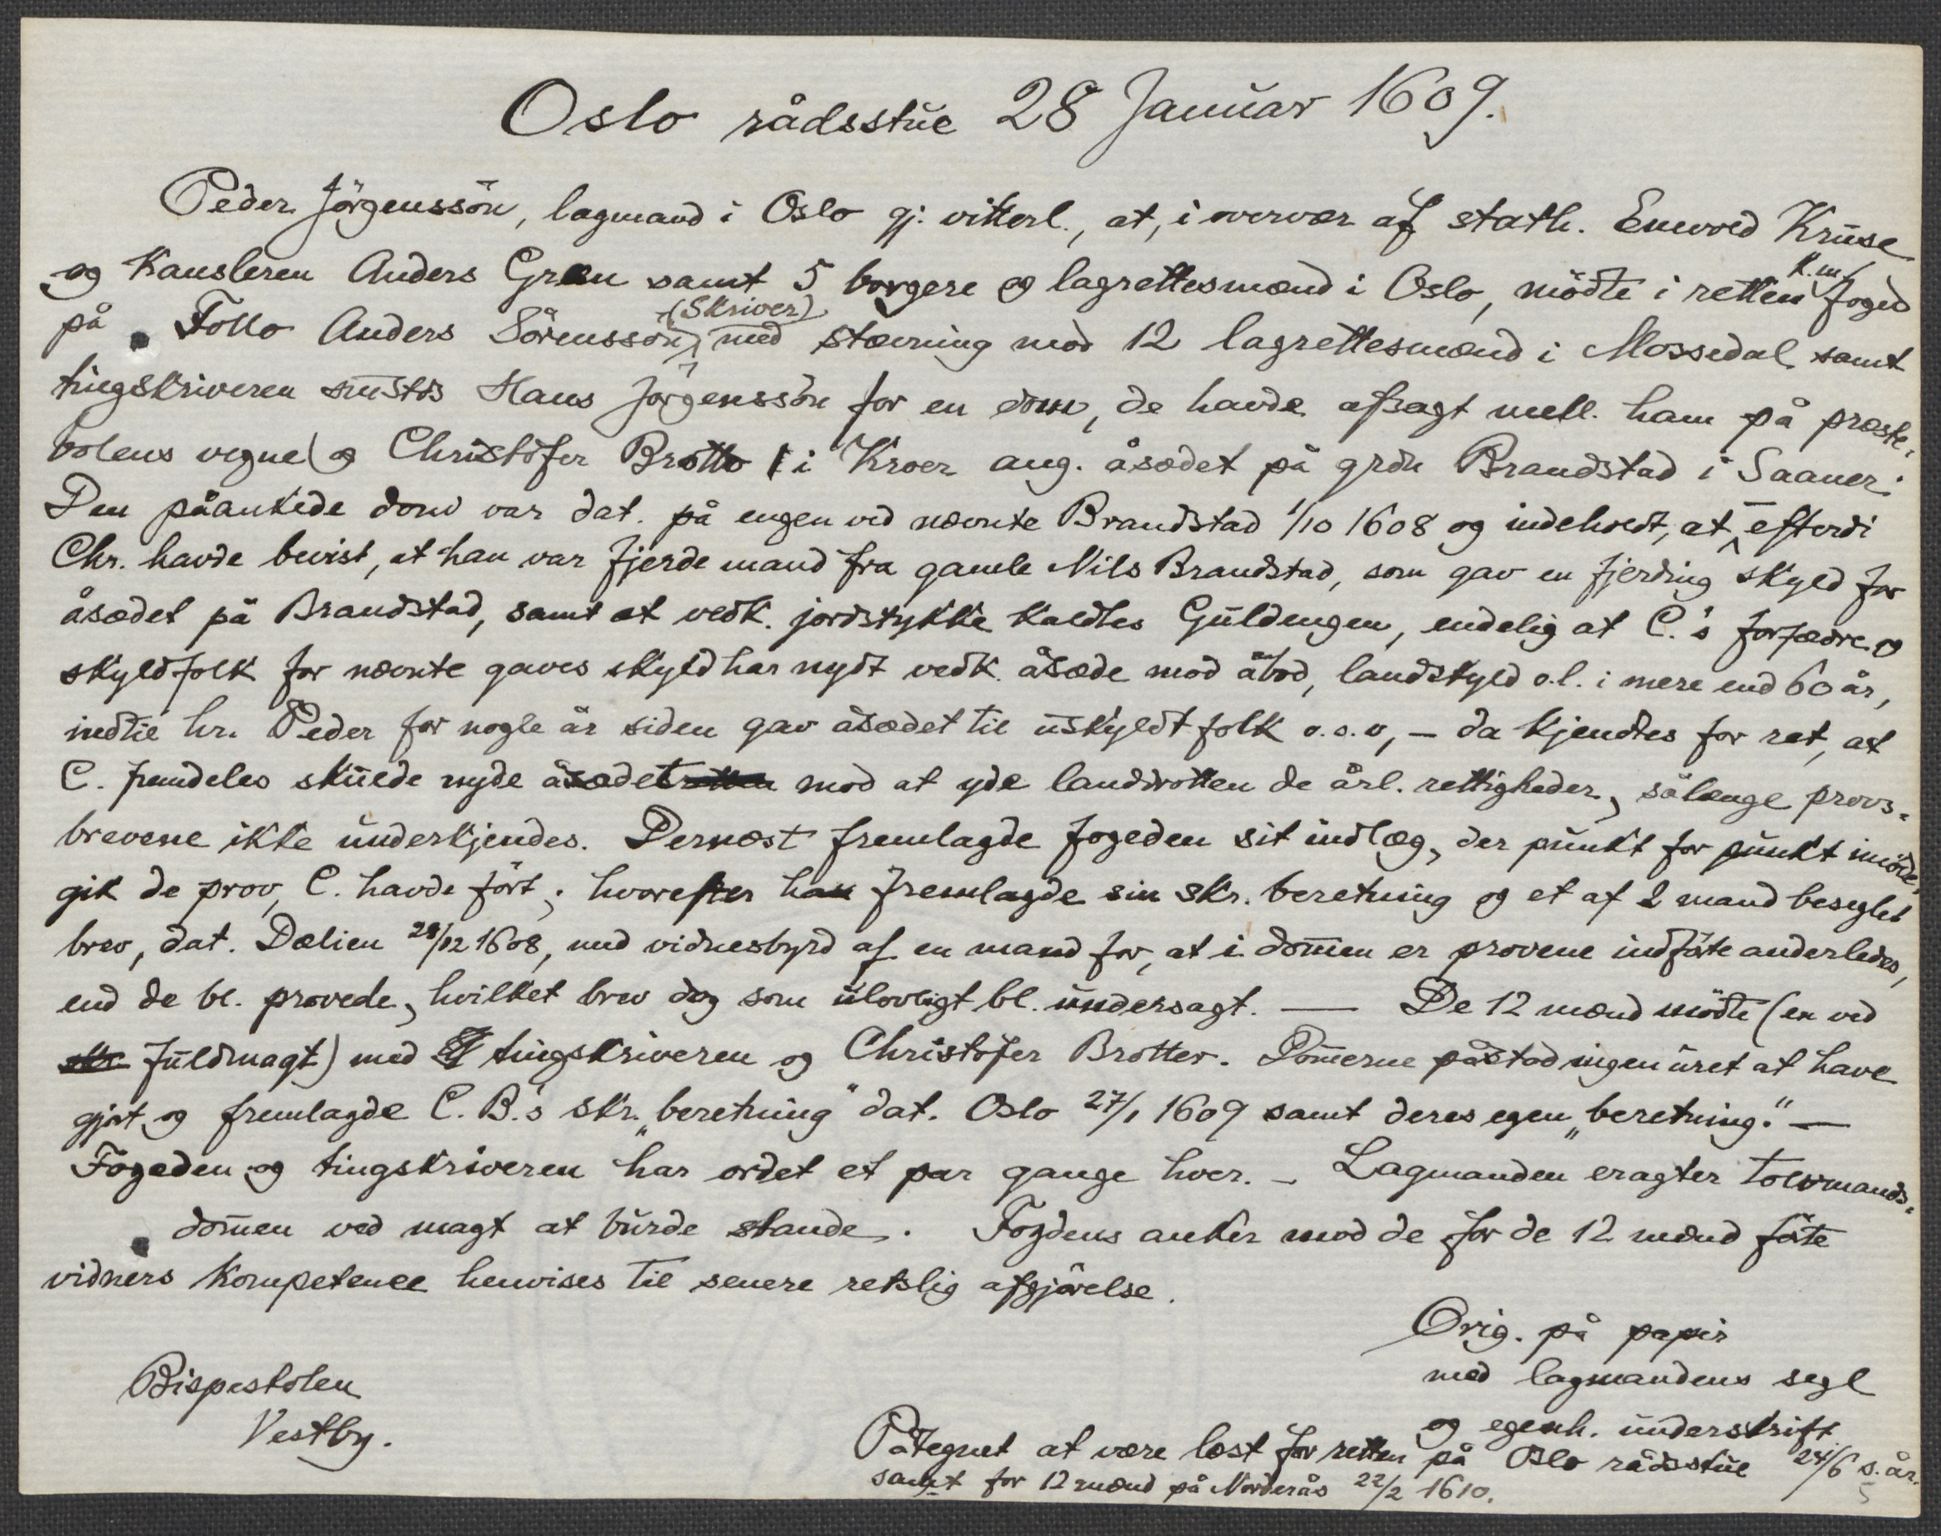 Oslo rådsstue 28 Januar 1609.
Peder Jörgenssön, lagmand i Oslo gj. vitterl., at, i overvær af stath. Enevold Kruse
og Kansleren Anders Green samt 5 borgere og lagrettesmænd i Oslo, mödte i retten K.M.s foged
på Follo Anders Sörenssön (Skriver) med stævning mod 12 lagrettesmænd i Mossedal samt
tingskriveren smstds Hans Jörgenssön for en dom, de havde afsagt mell. ham på præste-
bolens vegne og Christofer Brotto i Kroer ang. åsædet på grdn Brandstad i Saaner.
Den påankede dom var dat. på engen ved nævnte Brandstad 1/10 1608 og indeholdt, at, efterdi
Chr. havde bevist, at han var fjerde mand fra gamle Nils Brandstad, som gav en fjerding skyld for
åsædet på Brandstad, samt at vedk. jordstykke kaldtes Guldengen, endelig at C.'s forfædre og
skyldfolk for nævnte gaves skyld har nydt vedk. åsæde mod åbod, landskyld o.l. i mere end 60 år,
indtil hr. Peder for nogle år siden gav åsædet til uskyldt folk o.s.v, – da kjendtes for ret, at
C. fremdeles skulde nyde åsædet mod at yde landdrotten de årl. rettigheder, sålænge provs-
brevene ikke underkjendes. Dernæst fremlagde fogeden sit indlæg, der punkt for punkt imöde-
gik de prov, C. havde fört; hvorefter han fremlagde sin skr. beretning og et af 2 mand beseglet
brev, dat. Dælien 28/12 1608, med vidnesbyrd af en mand for, at i dom̅en er provene indförte anderledes,
end de bl. provede, hvilket brev dog som ulovligt bl. undersagt. — De 12 mænd mödte (en ved
fuldmagt) med tingskriveren og Christofer Brotter. Dom̅erne påstod ingen uret at have
gjort og fremlagde C. B.'s skr. „beretning" dat. Oslo 27/1 1609 samt deres egen „beretning." —
Fogeden og tingskriveren har ordet et par gange hver. – Lagmanden eragter tolvmands-
dom̅en ved magt at burde stande. Fogdens anker mod de for de 12 mænd förte
vidners Kompetence henvises til senere retslig afgjörelse.
Orig. på papir
med lagmandens segl
og egenh. underskrift.
Bispestolen
Vestby.
Påtegnet at være læst for retten på Oslo rådsstue 24/6 s. år.
samt for 12 mænd på Norderås 22/2 1610.